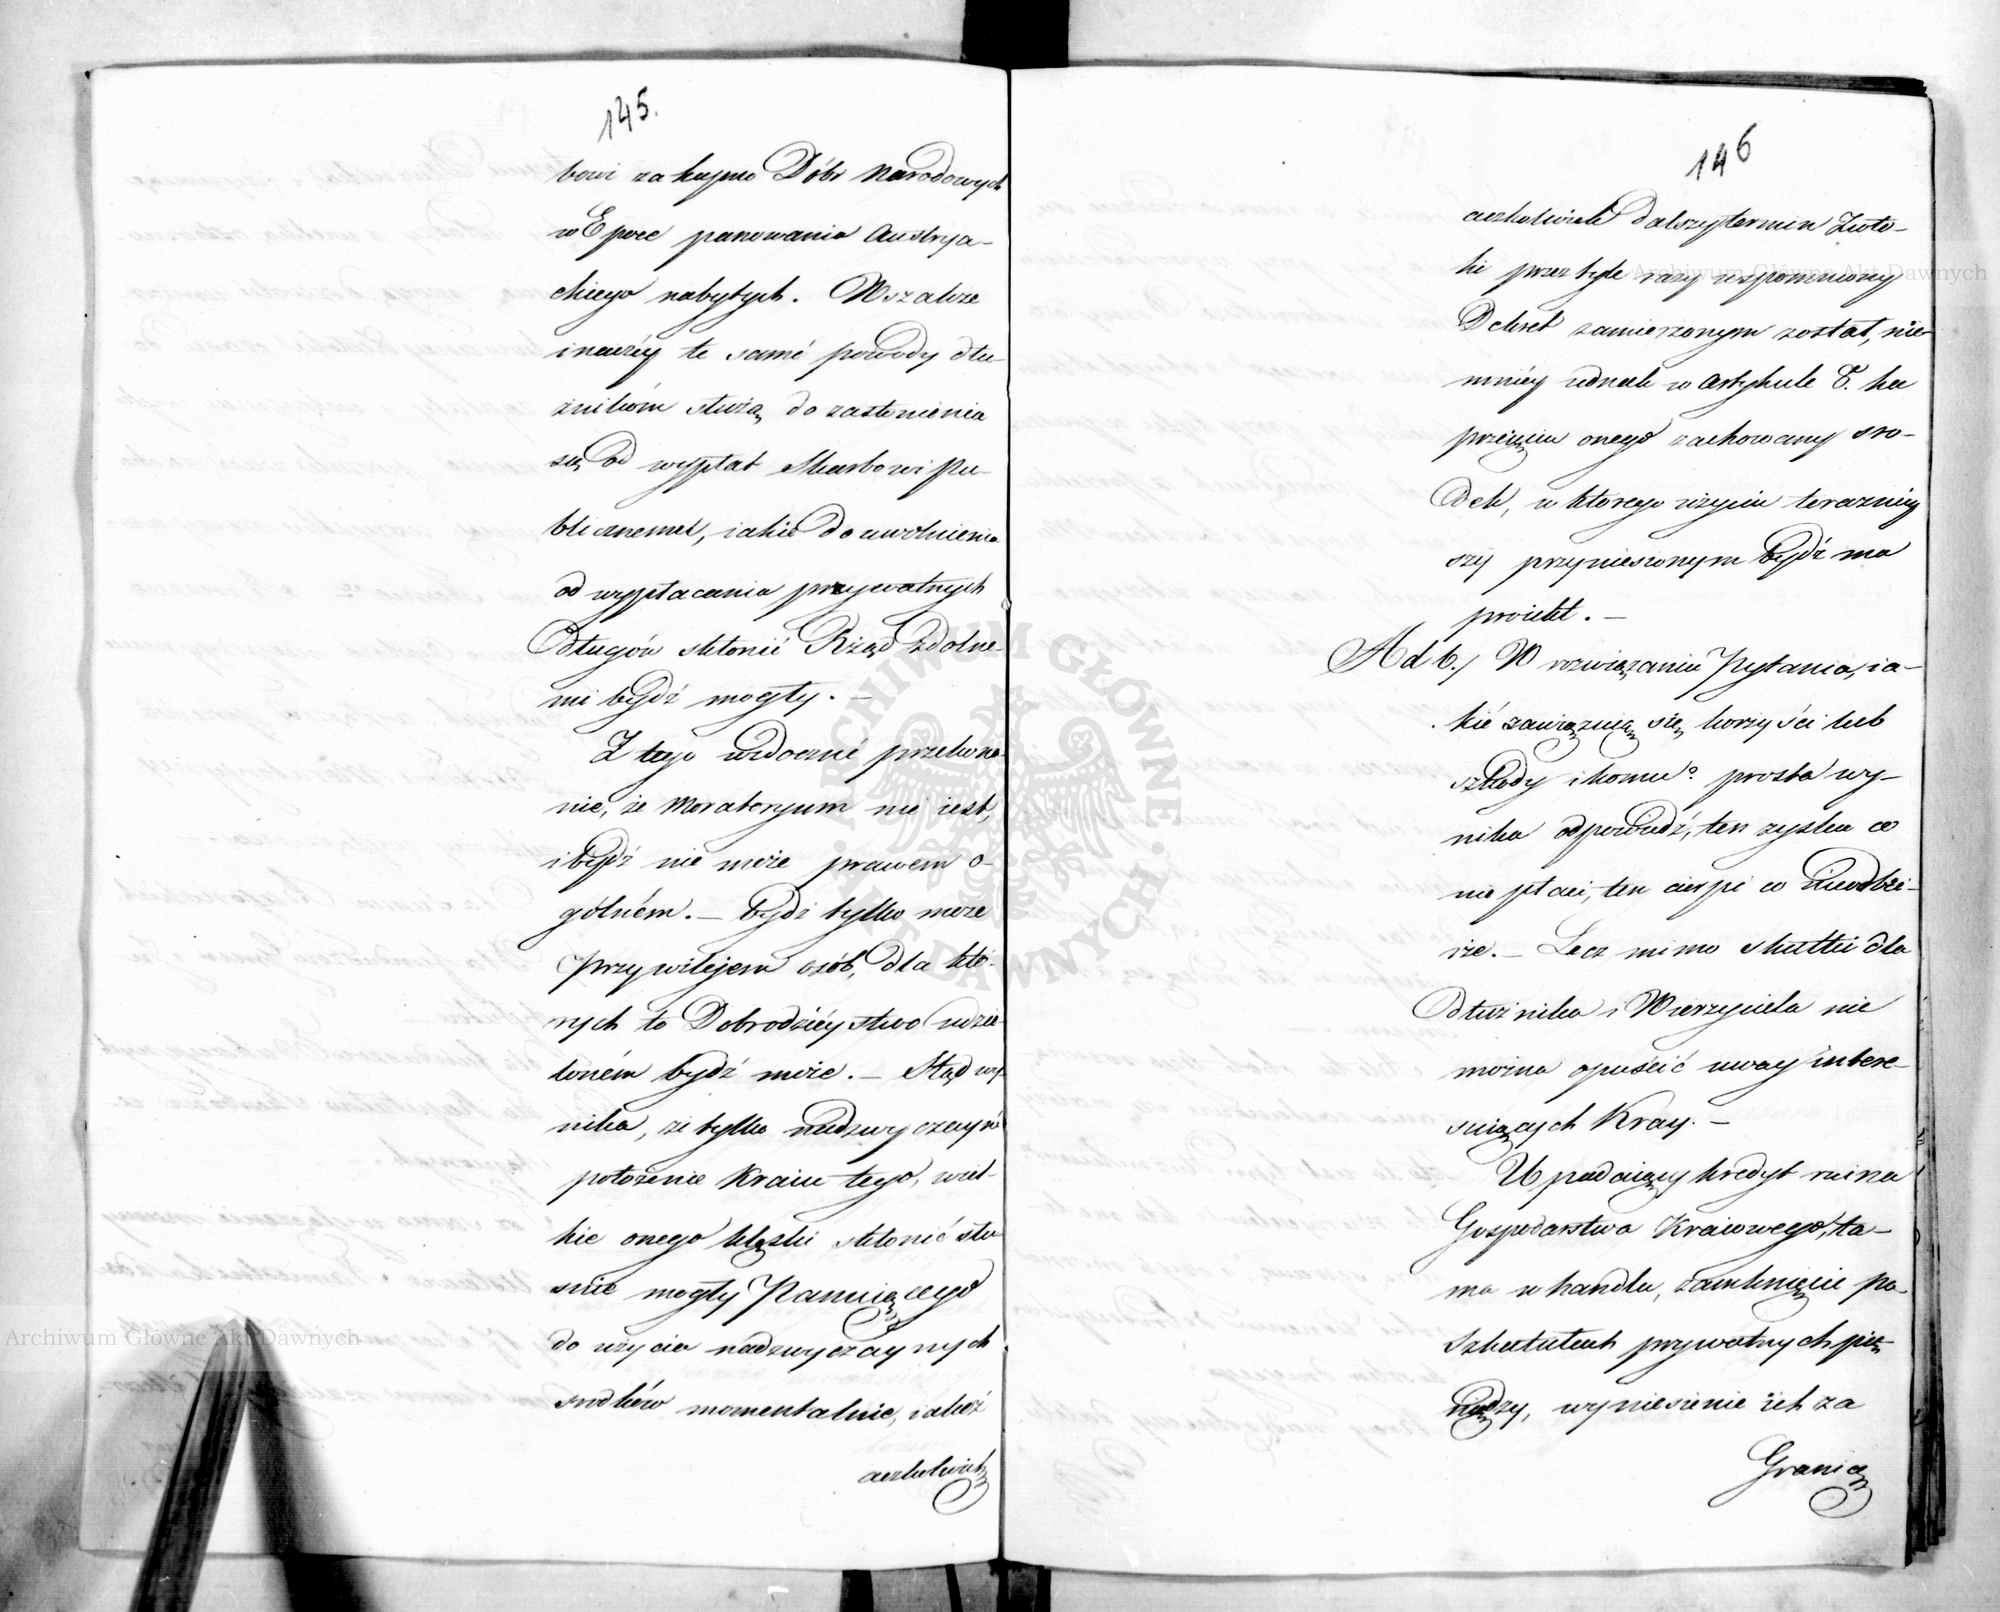 145.
bowi za kupno Dóbr Narodowych
w Epoce panowania Austrya-
ckiego nabytych. Wszakże
inaczéy te samé powody dłu-
żnikóm służą do zasłonienia
się od wypłat Skarbowi Pu-
blicznemu, iakie do uwolnienia
od wypłacania prywatnych
Długów skłonić Rząd zdolne-
mi bydź mogły. —
Z tego widoczné przekona-
nie, że Moratoryum nie iest,
i bydź nie może prawem o-
gólném. — bydź tylko może
Przywilejem osób, dla któ-
rych to Dobrodzieystwo udzie-
loném bydź może. — Stąd wy-
nika, że tylko nadzwyczayné
położenie Kraiu tego, wiel-
kie onego klęski skłonić słu-
sznie mogły Panuiącego
do użycia nadzwyczaynych
srodków momentalnie, iakoż
aczkolwiek
146
aczkolwiek dalszy termin Zwło-
ki przez tyle razy wspomniony
Dekret zamierzonym został, nie-
mniéy iednak w Artykule 8. ku
przeięciu onego zachowany śro-
dek, w którego użyciu teraznieyszy
przyniesionym bydź ma
proiekt. —
Ad 6./ W rozwiązaniu Pytania, ia-
kié zawiązuią się korzyści lub
szkody i komu? prosta wy-
nika odpowiedź, ten zyska co
nie płaci, ten cierpi co nieodbie-
rze. — Lecz mimo skutki dla
Dłużnika i Wierzyciela nie
można opuścić uwag intere-
suiących Kray. —
Upadaiący kredyt ruina
Gospodarstwa Kraiowego, ta-
ma w handlu, zamknięcie po
Szkatułach prywatnych pie-
niędzy, wyniesienie ich za
Granicę
Archiwum Główne Akt Dawnych
Archiwum Główne Akt Dawnych
ARCHIWUM GŁÓWNE AKT DAWNYCH